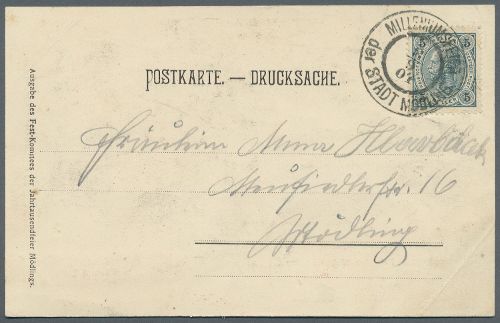 MILLENIUMS
der STADT MÖDLING
5 5
5
POSTKARTE. — DRUCKSACHE.
Ausgabe des Fest-Komitees der Jahrtausendfeier Mödlings.
Fräulein Anna
Neusiedlerstr. 16
Mödling